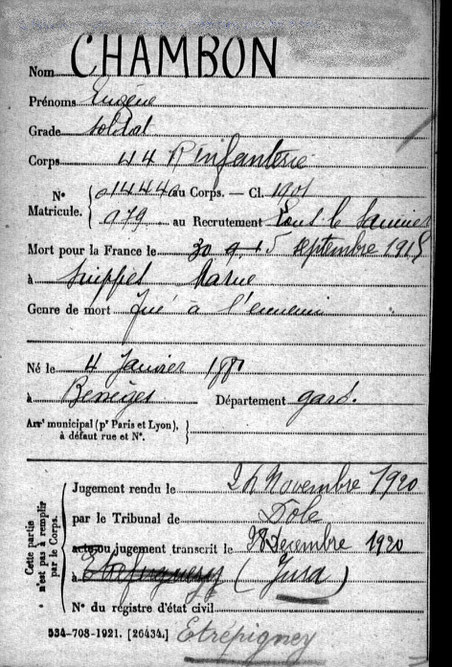 Nom CHAMBON
Prénoms Eugène
Grade soldat
Corps 44 R Infanterie
N° 01444 au Corps. — Cl. 1901
Matricule. 979 au Recrutement Lons le Saunier
Mort pour la France le 30 9 15 septembre 1915
à Suippes Marne
Genre de mort Tué à l'ennemi
Né le 4 Janvier 1881
à Bessèges Département gard.
Arr^t municipal (p^r Paris et Lyon),
à défaut rue et N°.
Cette partie
n'est pas à remplir
par le Corps.
Jugement rendu le 24 Novembre 1920
par le Tribunal de Dole
acte ou jugement transcrit le 28 Decembre 1920
à (Jura)
N° du registre d'état civil
534-708-1921. [26434.] Etrépigney